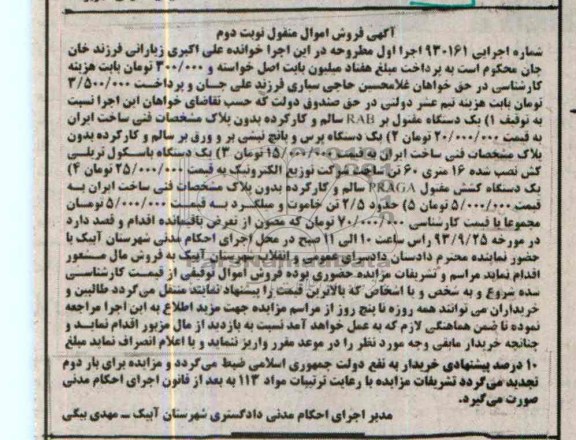 آگهی فروش اموال منقول نوبت دوم
شماره اجرایی ۹۳۰۱۶۱ اجرا اول مطروحه در این اجرا خوانده علی اکبری زیارانی فرزند خان
جان محکوم است به پرداخت مبلغ هفتاد میلیون بابت اصل خواسته و ۳۰۰/۰۰۰ تومان بابت هزینه
کارشناسی در حق خواهان غلامحسین حاجی سیاری فرزند علی جان و پرداخت ۳/۵۰۰/۰۰۰
تومان بابت هزینه نیم عشر دولتی در حق صندوق دولت که حسب تقاضای خواهان این اجرا نسبت
به توقیف ۱) یک دستگاه مفتول بر RAB سالم و کارکرده بدون پلاک مشخصات فنی ساخت ایران
به قیمت ۲۰/۰۰۰/۰۰۰ تومان ۲) یک دستگاه پرس و پانچ نبشی بر و ورق بر سالم و کارکرده بدون
پلاک مشخصات فنی ساخت ایران به قیمت ۱۵/۰۰۰/۰۰۰ تومان ۳) یک دستگاه باسکول تریلی
کش نصب شده ۱۶ متری ۶۰ تن ساخت شرکت توزیع الکترونیک به قیمت ۲۵/۰۰۰/۰۰۰ تومان ۴)
یک دستگاه کشش مفتول PRAGA سالم و کارکرده بدون پلاک مشخصات فنی ساخت ایران به
قیمت ۵/۰۰۰/۰۰۰ تومان ۵) حدود ۲/۵ تن خاموت و میلگرد به قیمت ۵/۰۰۰/۰۰۰ تومان
مجموعا با قیمت کارشناسی ۷۰/۰۰۰/۰۰۰ تومان که مصون از تعرض باقیمانده اقدام و قصد دارد
در مورخه ۹۳/۹/۲۵ راس ساعت ۱۰ الی ۱۱ صبح در محل اجرای احکام مدنی شهرستان آبیک با
حضور نماینده محترم دادستان دادسرای عمومی و انقلاب شهرستان آبیک به فروش مال مسعور
اقدام نماید مراسم و تشریفات مزایده حضوری بوده فروش اموال توقیفی از قیمت کارشناسی
شده شروع و به شخص و یا اشخاص که بالاترین قیمت را پیشنهاد نمایند منتقل می گردد طالبین و
خریداران می توانند همه روزه تا پنج روز از مراسم مزایده جهت مزید اطلاع به این اجرا مراجعه
نموده تا ضمن هماهنگی لازم که به عمل خواهد آمد نسبت به بازدید از مال مزبور اقدام نمایند و
چنانچه خریدار مابقی وجه مورد نظر را در موعد مقرر واریز ننماید و یا اعلام انصراف نماید مبلغ
۱۰ درصد پیشنهادی خریدار به نفع دولت جمهوری اسلامی ضبط می گردد و مزایده برای بار دوم
تجدید می گردد تشریفات مزایده با رعایت ترتیبات مواد ۱۱۳ به بعد از قانون اجرای احکام مدنی
صورت می گیرد.
مدیر اجرای احکام مدنی دادگستری شهرستان آبیک ــ مهدی بیگی